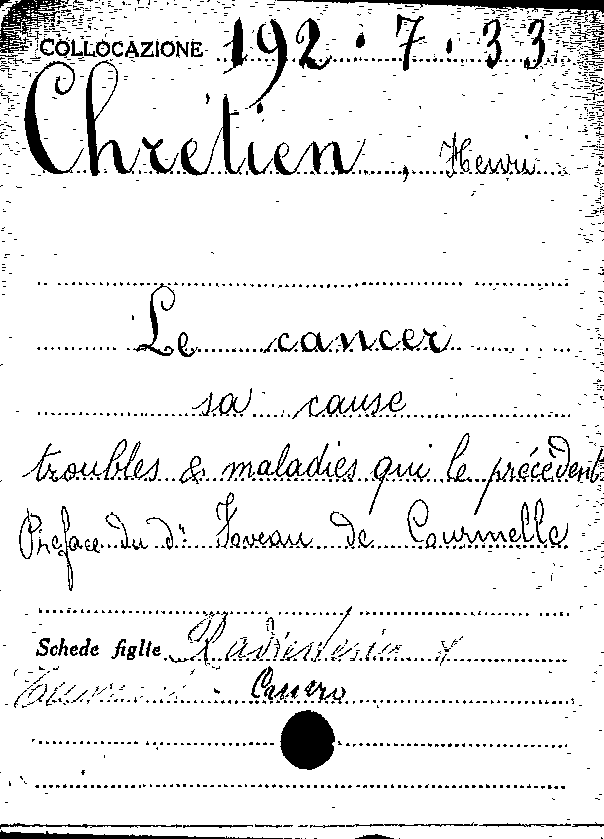 COLLOCAZIONE 192.7.33
Chrétien, Henri
Le cancer
sa cause
troubles & maladies qui le précèdent
Préface du dr Foveau de Courmelle
Schede figlie
Cancro